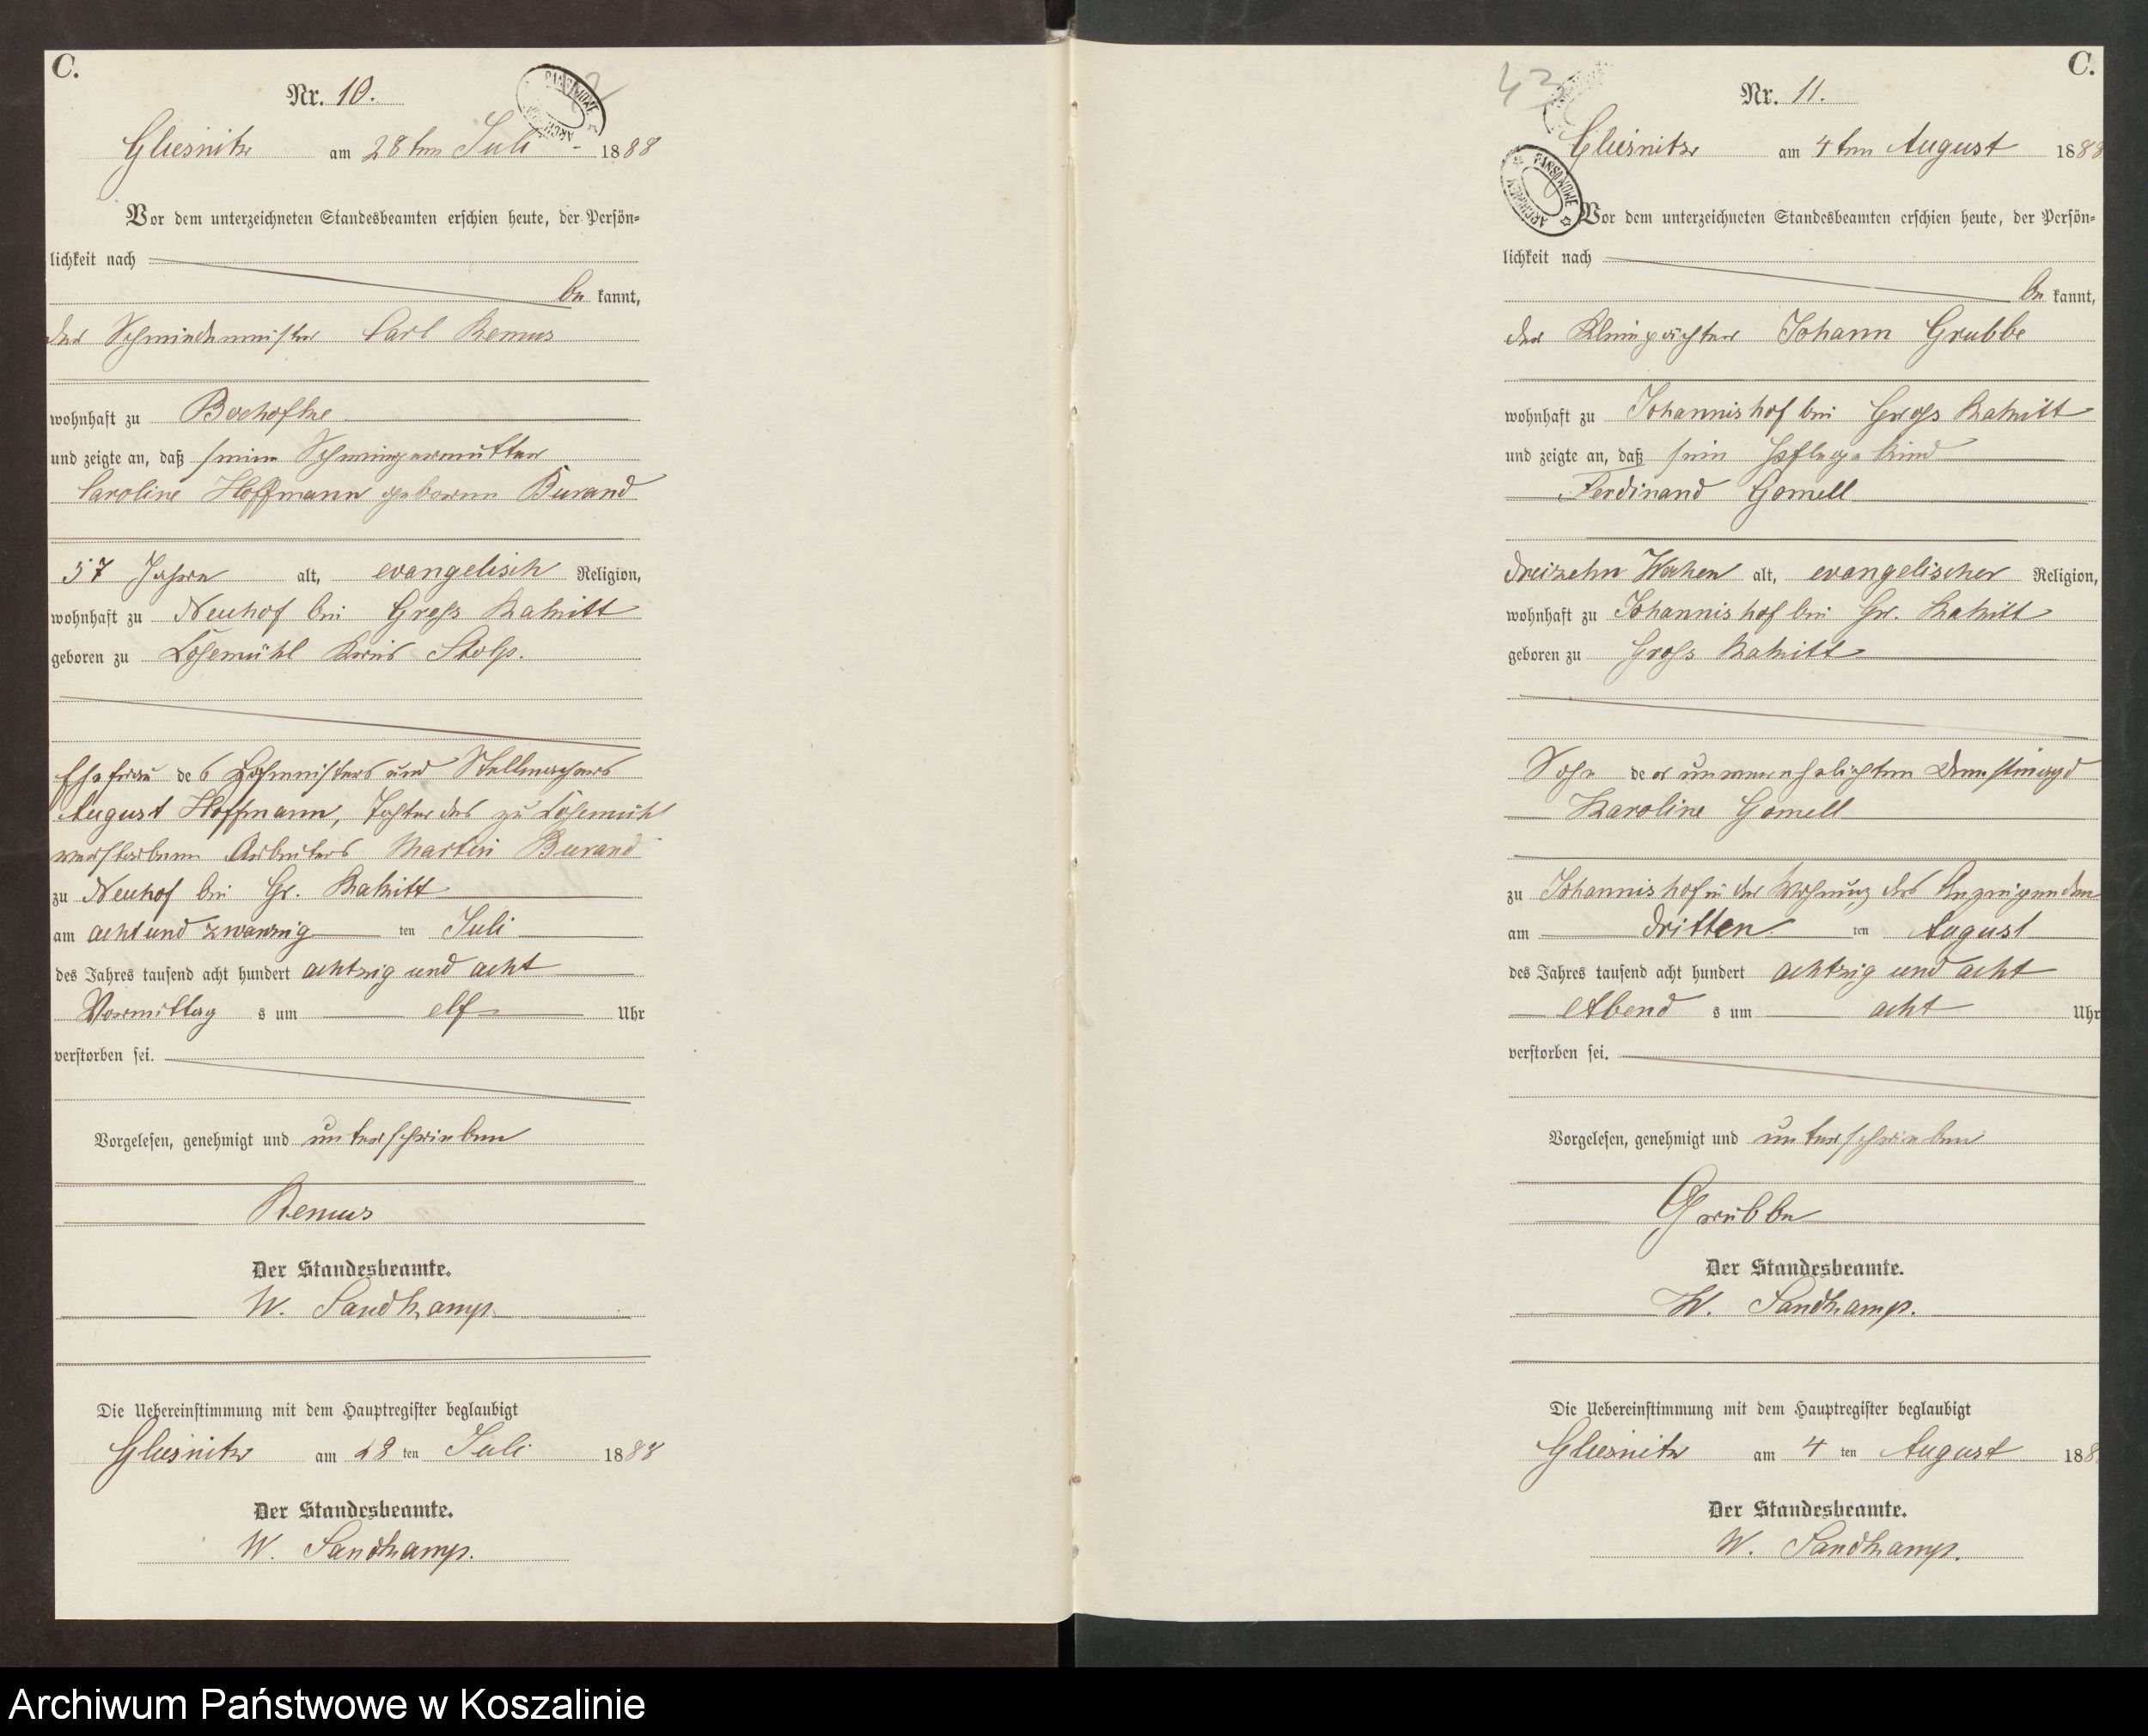 C.
Nr. 10.
Gliesnitz am 28ten Juli 1888
Vor dem unterzeichneten Standesbeamten erschien heute, der Persön-
lichkeit nach
be kannt,
der Schmiedemeister Carl Remus
wohnhaft zu Bochofke
und zeigte an, daß seine Schwiegermutter
Caroline Hoffmann geborene Burand
57 Jahre alt, evangelisch Religion,
wohnhaft zu Neuhof bei Gross Rakitt
geboren zu Lohsemühl Kreis Stolp.
Ehefrau des und Stellmachers
August Hoffmann, Tochter des zu
verstorbenen Arbeiters Martin Burand
zu Neuhof bei Gr. Rakitt
am acht und zwanzig ten Juli
des Jahres tausend acht hundert achtzig und acht
Vormittag s um elf Uhr
verstorben sei.
Vorgelesen, genehmigt und unterschrieben
Remus
Der Standesbeamte.
W. Sandkamp.
Die Uebereinstimmung mit dem Hauptregister beglaubigt
Gliesnitz am 28 ten Juli 1888
Der Standesbeamte.
W. Sandkamp.
43
C.
Nr. 11.
Gliesnitz am 4ten August 1888
Vor dem unterzeichneten Standesbeamten erschien heute, der Persön-
lichkeit nach
be kannt,
der Kleinpächter Johann Grubbe
wohnhaft zu Johannishof bei Gross Rakitt
und zeigte an, daß sein Pflegekind
Ferdinand Gomell
dreizehn Wochen alt, evangelischer Religion,
wohnhaft zu Johannishof bei Gr. Rakitt
geboren zu Gross Rakitt
Sohn der unverehelichten Dienstmagd
Karoline Gomell
zu Johannishof in der Wohnung des Anzeigenden
am dritten ten August
des Jahres tausend acht hundert achtzig und acht
Abend s um acht Uhr
verstorben sei.
Vorgelesen, genehmigt und unterschrieben
Grubbe
Der Standesbeamte.
W. Sandkamp.
Die Uebereinstimmung mit dem Hauptregister beglaubigt
Gliesnitz am 4 ten August 188
Der Standesbeamte.
W. Sandkamp.
Archiwum Państwowe w Koszalinie